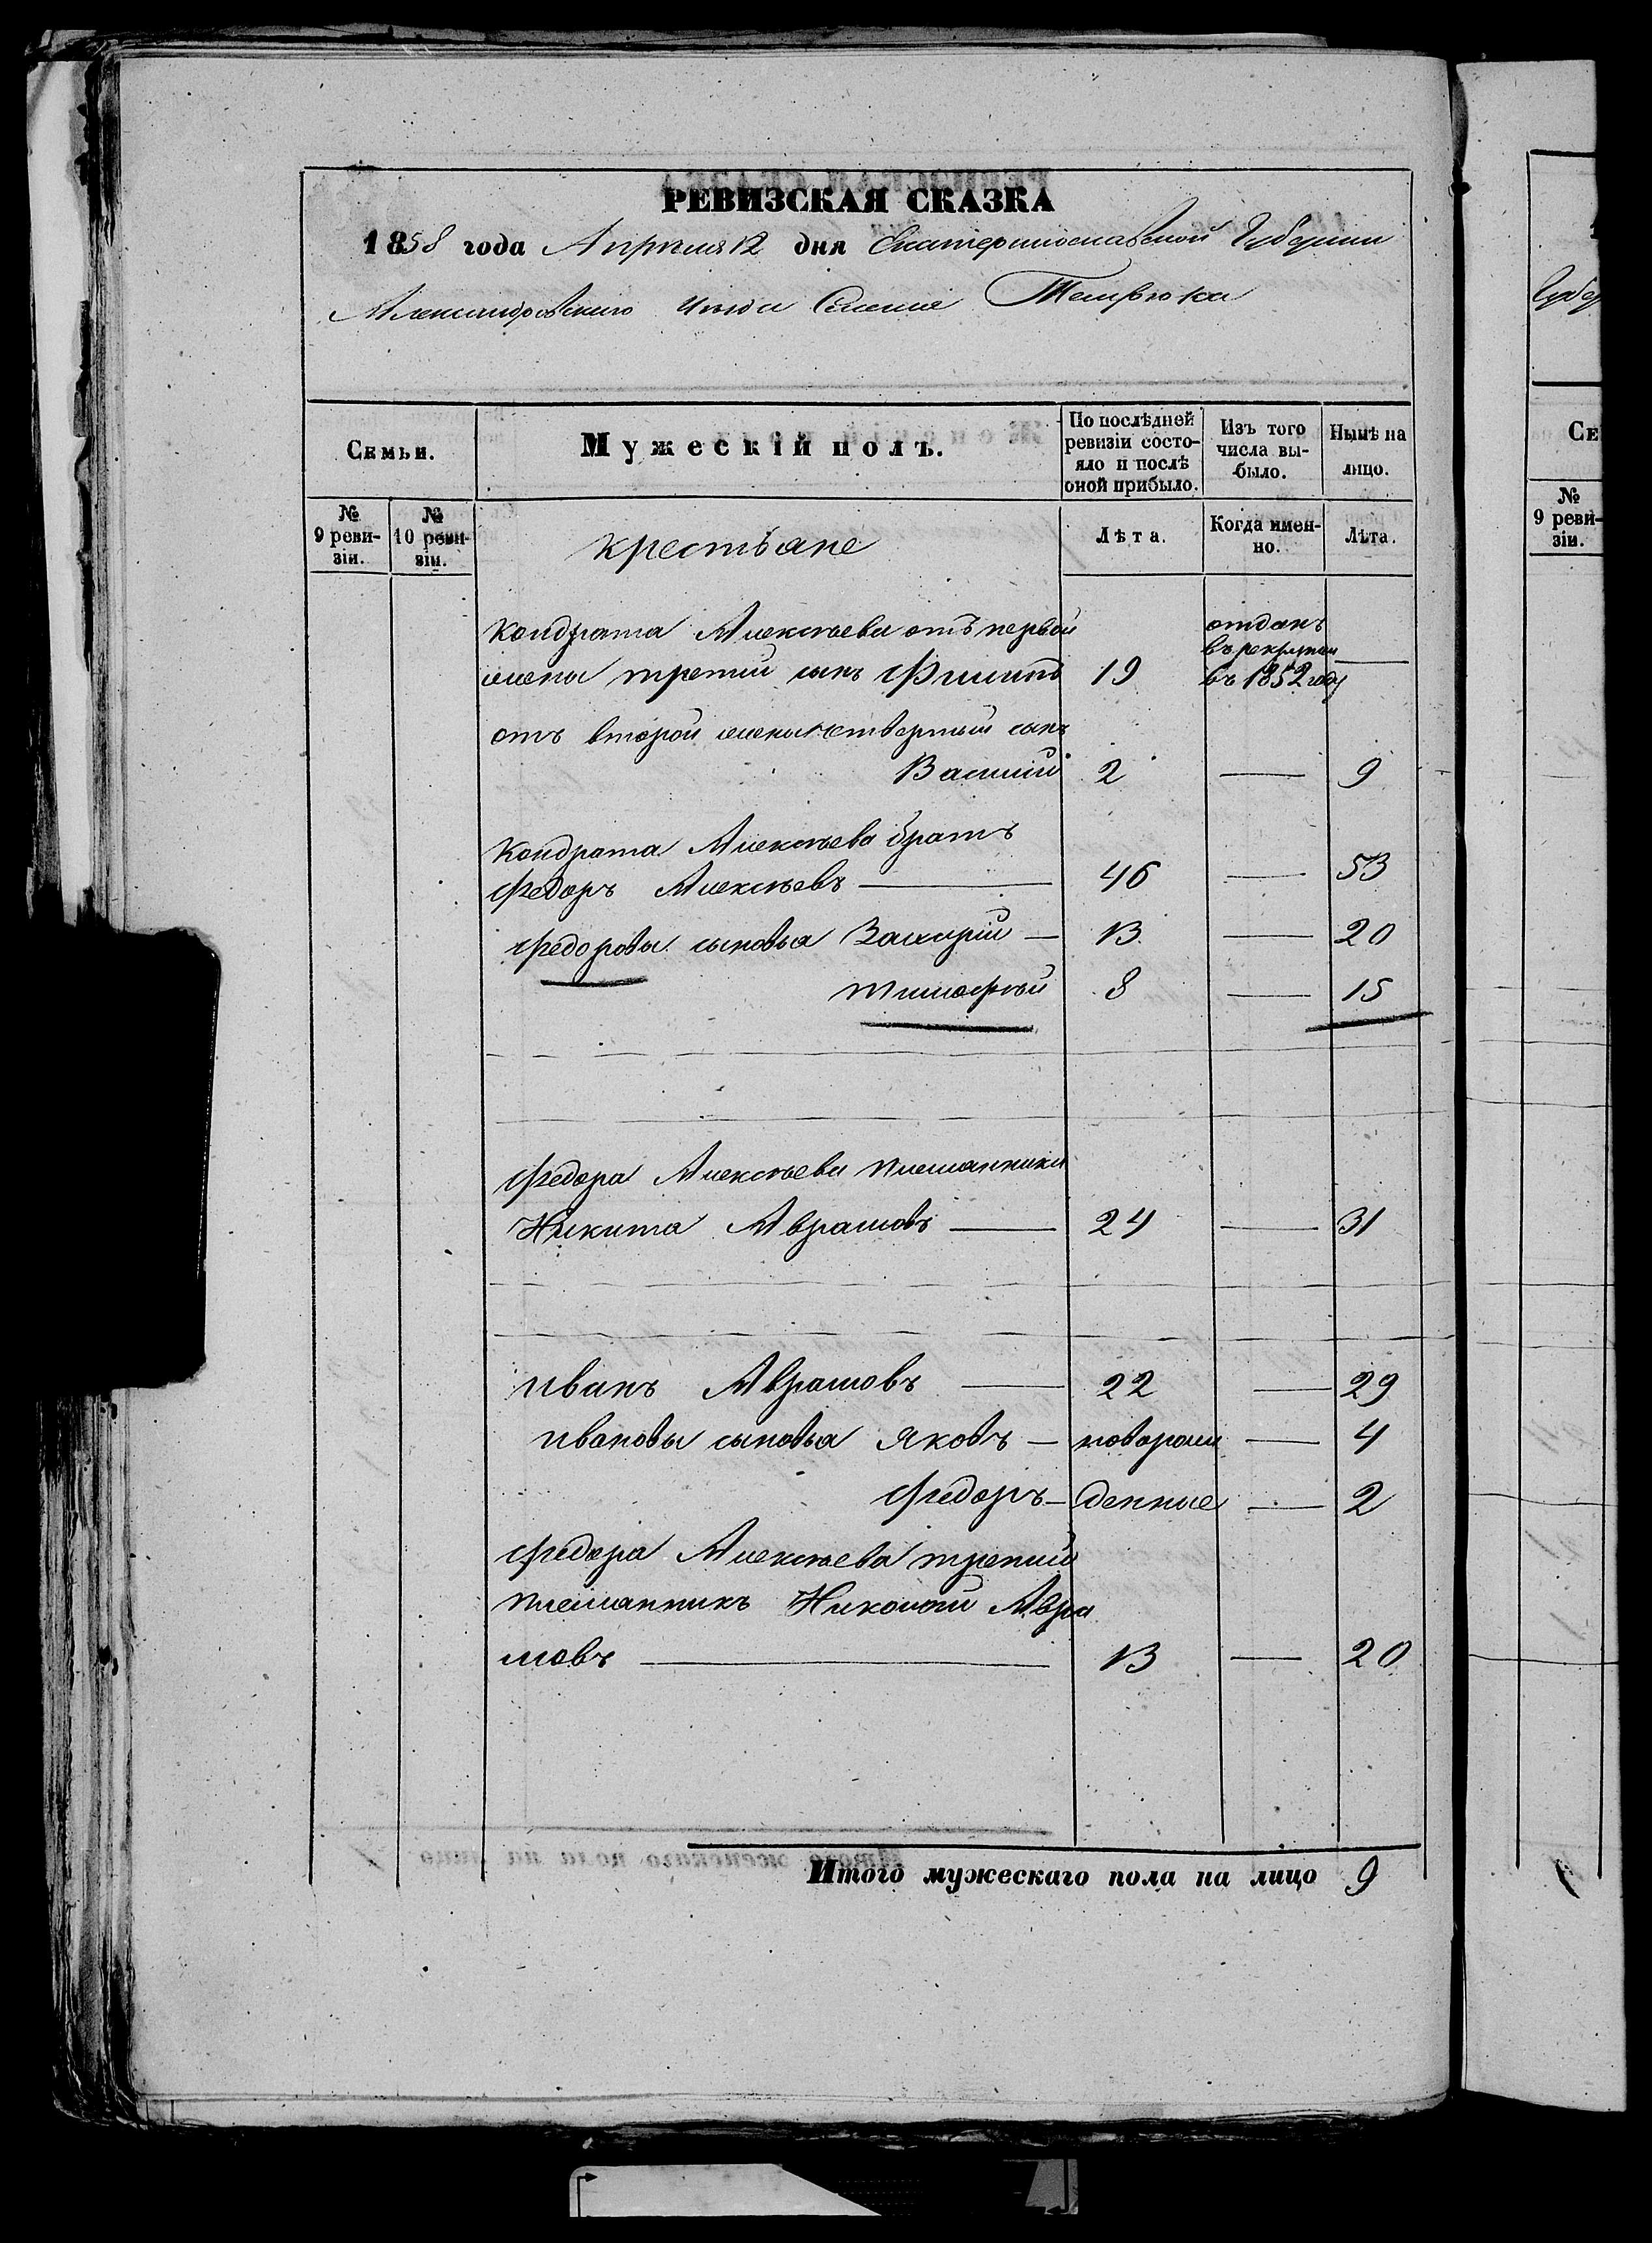 РЕВИЗСКАЯ СКАЗКА
1858 года Апрѣля 12 дня Екатеринославской Губерніи
Александровскаго Уѣзда Селенія Темрюка
Семьи.
Мужескій полъ.
По послѣдней ревизіи состояло и послѣ оной прибыло.
Изъ того числа выбыло.
Нынѣ на лицо.
№ 9 ревизіи.
№ 10 ревизіи.
крестьяне
Лѣта.
Когда именно.
Лѣта.
Кондрата Алексѣева отъ первой
жены третій сынъ Филипъ 19 отданъ въ рекруты въ 1852 году —
отъ второй жены четвертый сынъ
Василій 2 — 9
Кондрата Алексѣева братъ
Федоръ Алексѣевъ — 46 — 53
Федоровы сыновья Захарій — 13 — 20
Тимофѣй 8 — 15
Федора Алексѣева племянники
Никита Аврамовъ — 24 — 31
Иванъ Аврамовъ — 22 — 29
Ивановы сыновья Яковъ — новорож — 4
Федоръ — денные — 2
Федора Алексѣева третій
племянникъ Николай Авра
мовъ — 13 — 20
Итого мужескаго пола на лицо 9
Губер
Се
№ 9 ревизіи.